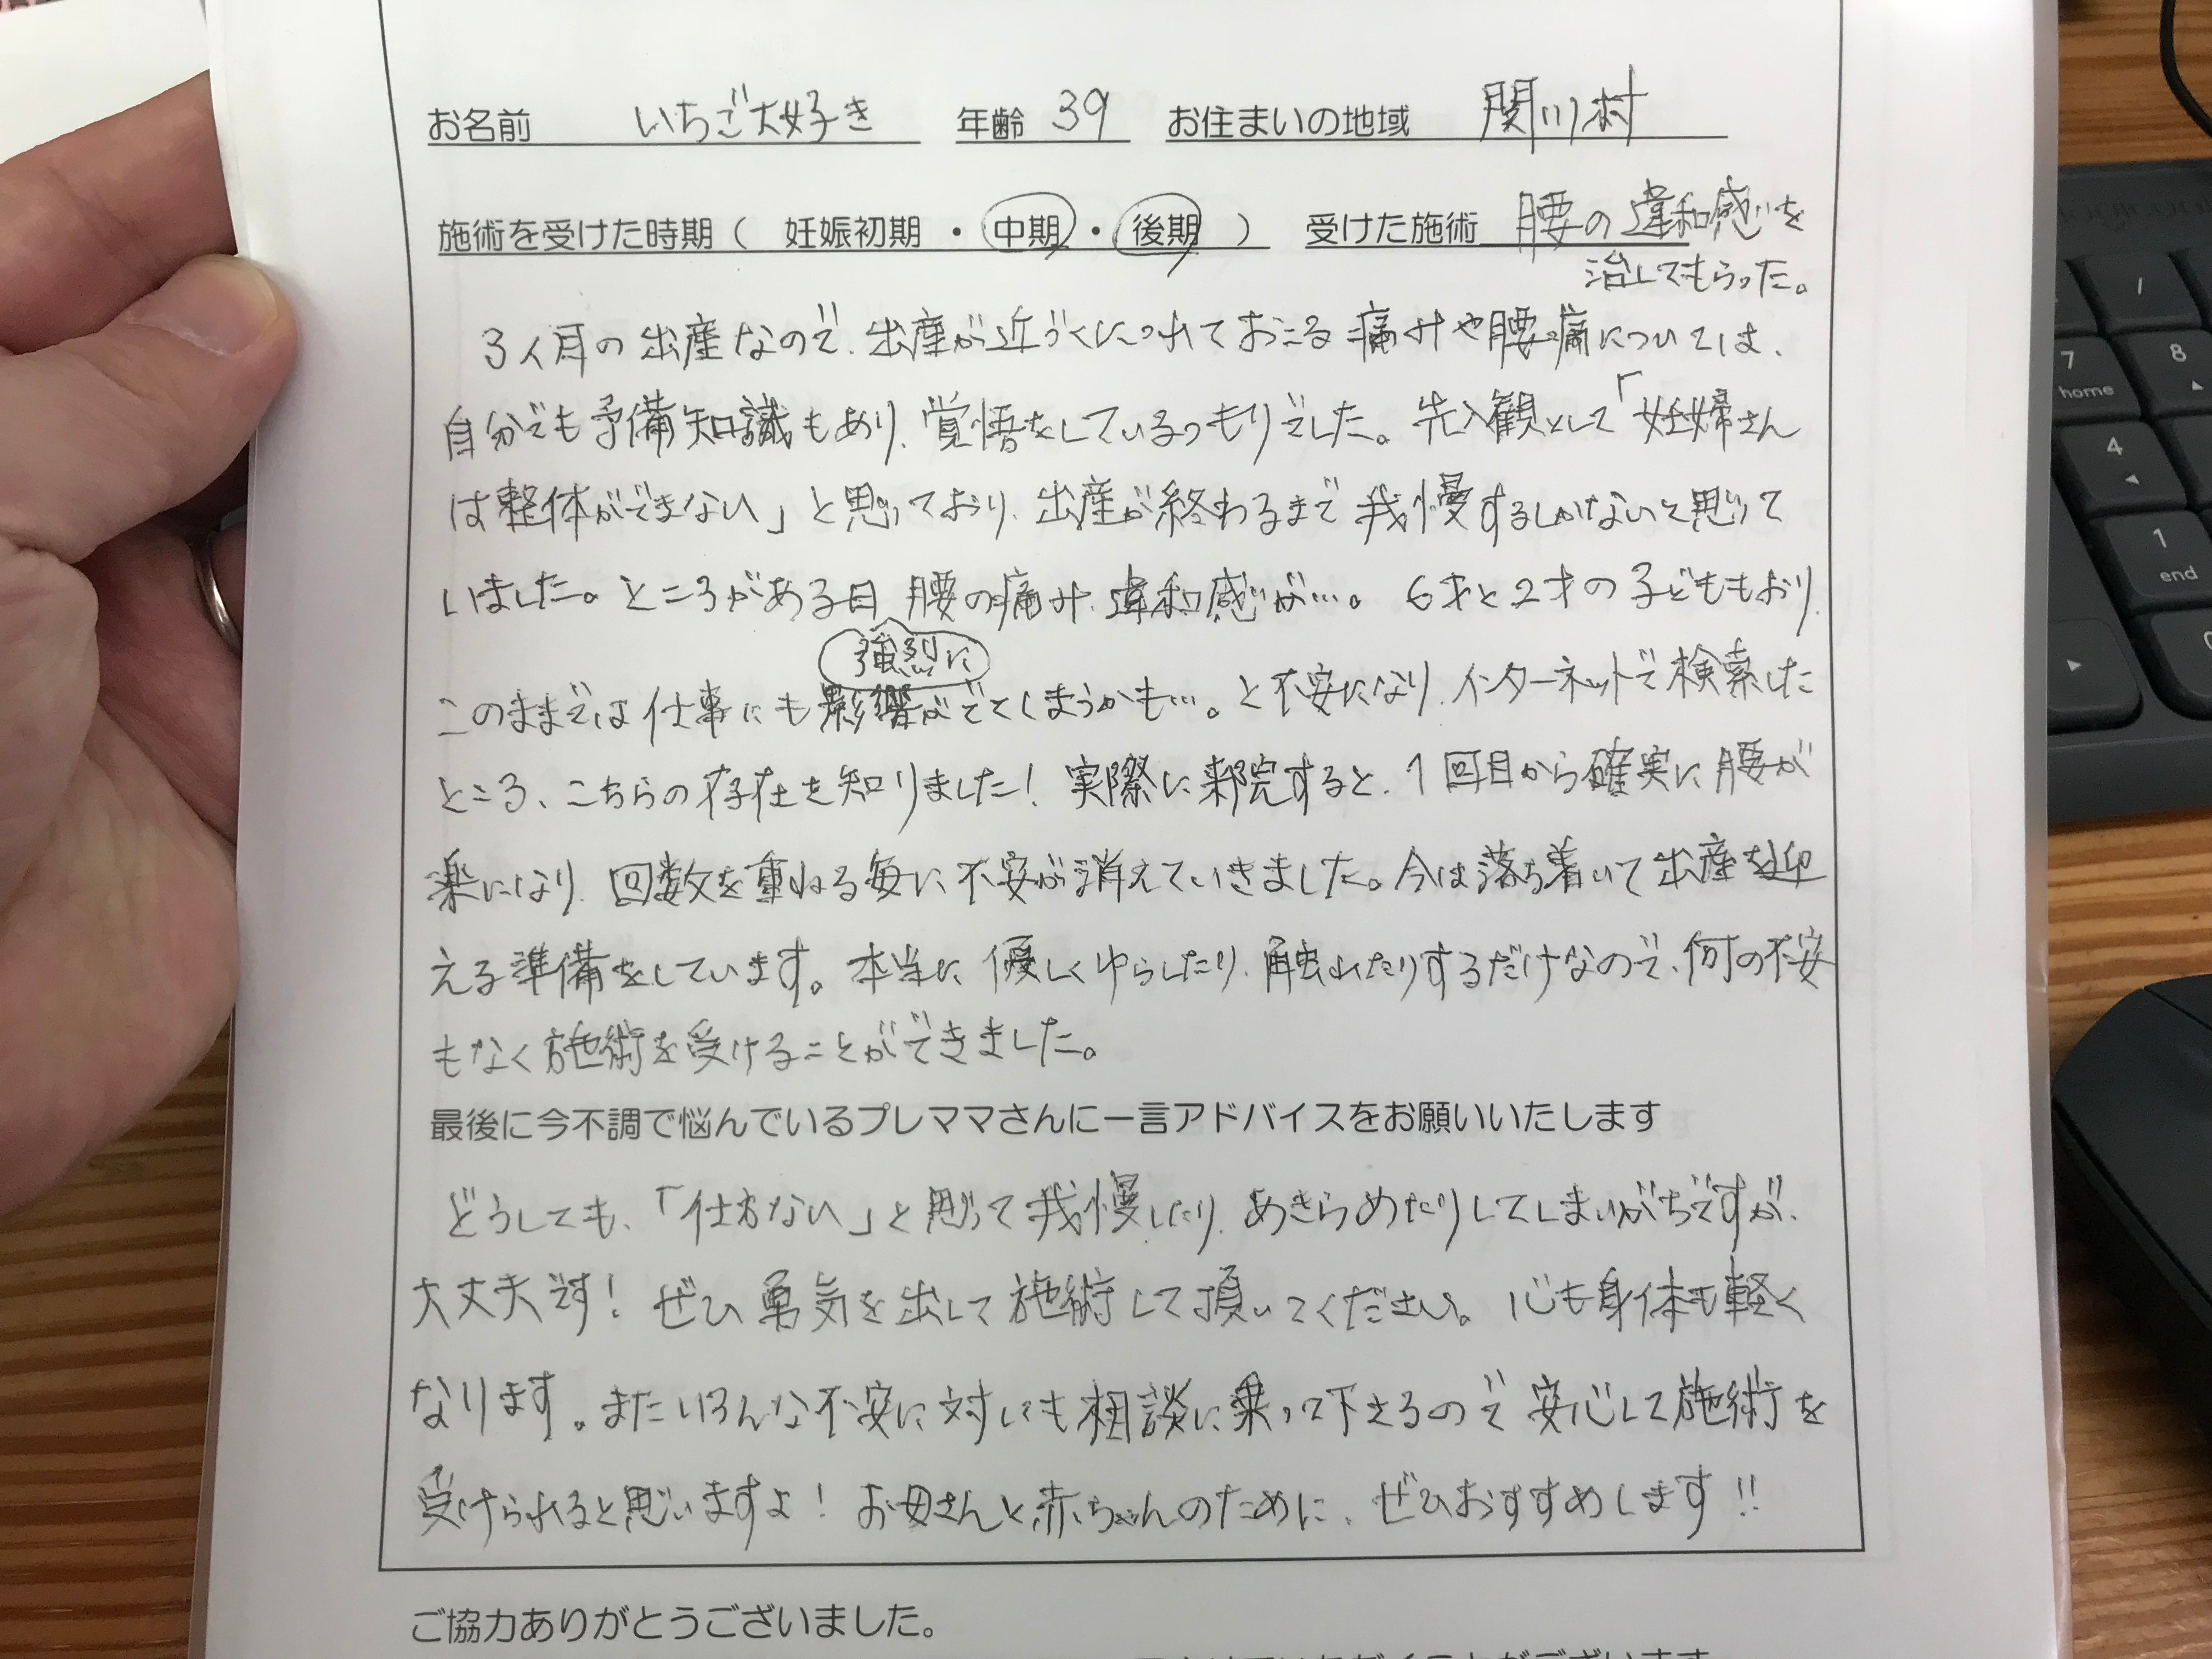 お名前 いちご大好き 年齢 39 お住まいの地域 関川村
施術を受けた時期 ( 妊娠初期 ・ 中期 ・ 後期 ) 受けた施術 腰の違和感を
治してもらった。
3人目の出産なので、出産が近づくにつれておこる痛みや腰痛については、
自分でも予備知識もあり、覚悟をしているつもりでした。先入観として「妊婦さん
は整体ができない」と思っており、出産が終わるまで我慢するしかないと思って
いました。ところがある日腰の痛み、違和感が…。6才と2才の子どももおり、
強烈に
このままでは仕事にも影響がでてしまうかも…。と不安になり、インターネットで検索した
ところ、こちらの存在を知りました！実際に来院すると、1回目から確実に腰が
楽になり、回数を重ねる毎に不安が消えていきました。今は落ち着いて出産を迎
える準備をしています。本当に優しくゆらしたり、触れたりするだけなので、何の不安
もなく施術を受けることができました。
最後に今不調で悩んでいるプレママさんに一言アドバイスをお願いいたします
どうしても、「仕方ない」と思って我慢したり、あきらめたりしてしまいがちですが、
大丈夫です！ぜひ勇気を出して施術して頂いてください。心も身体も軽く
なります。またいろんな不安に対しても相談に乗って下さるので安心して施術を
受けられると思いますよ！お母さんと赤ちゃんのために、ぜひおすすめします!!
ご協力ありがとうございました。